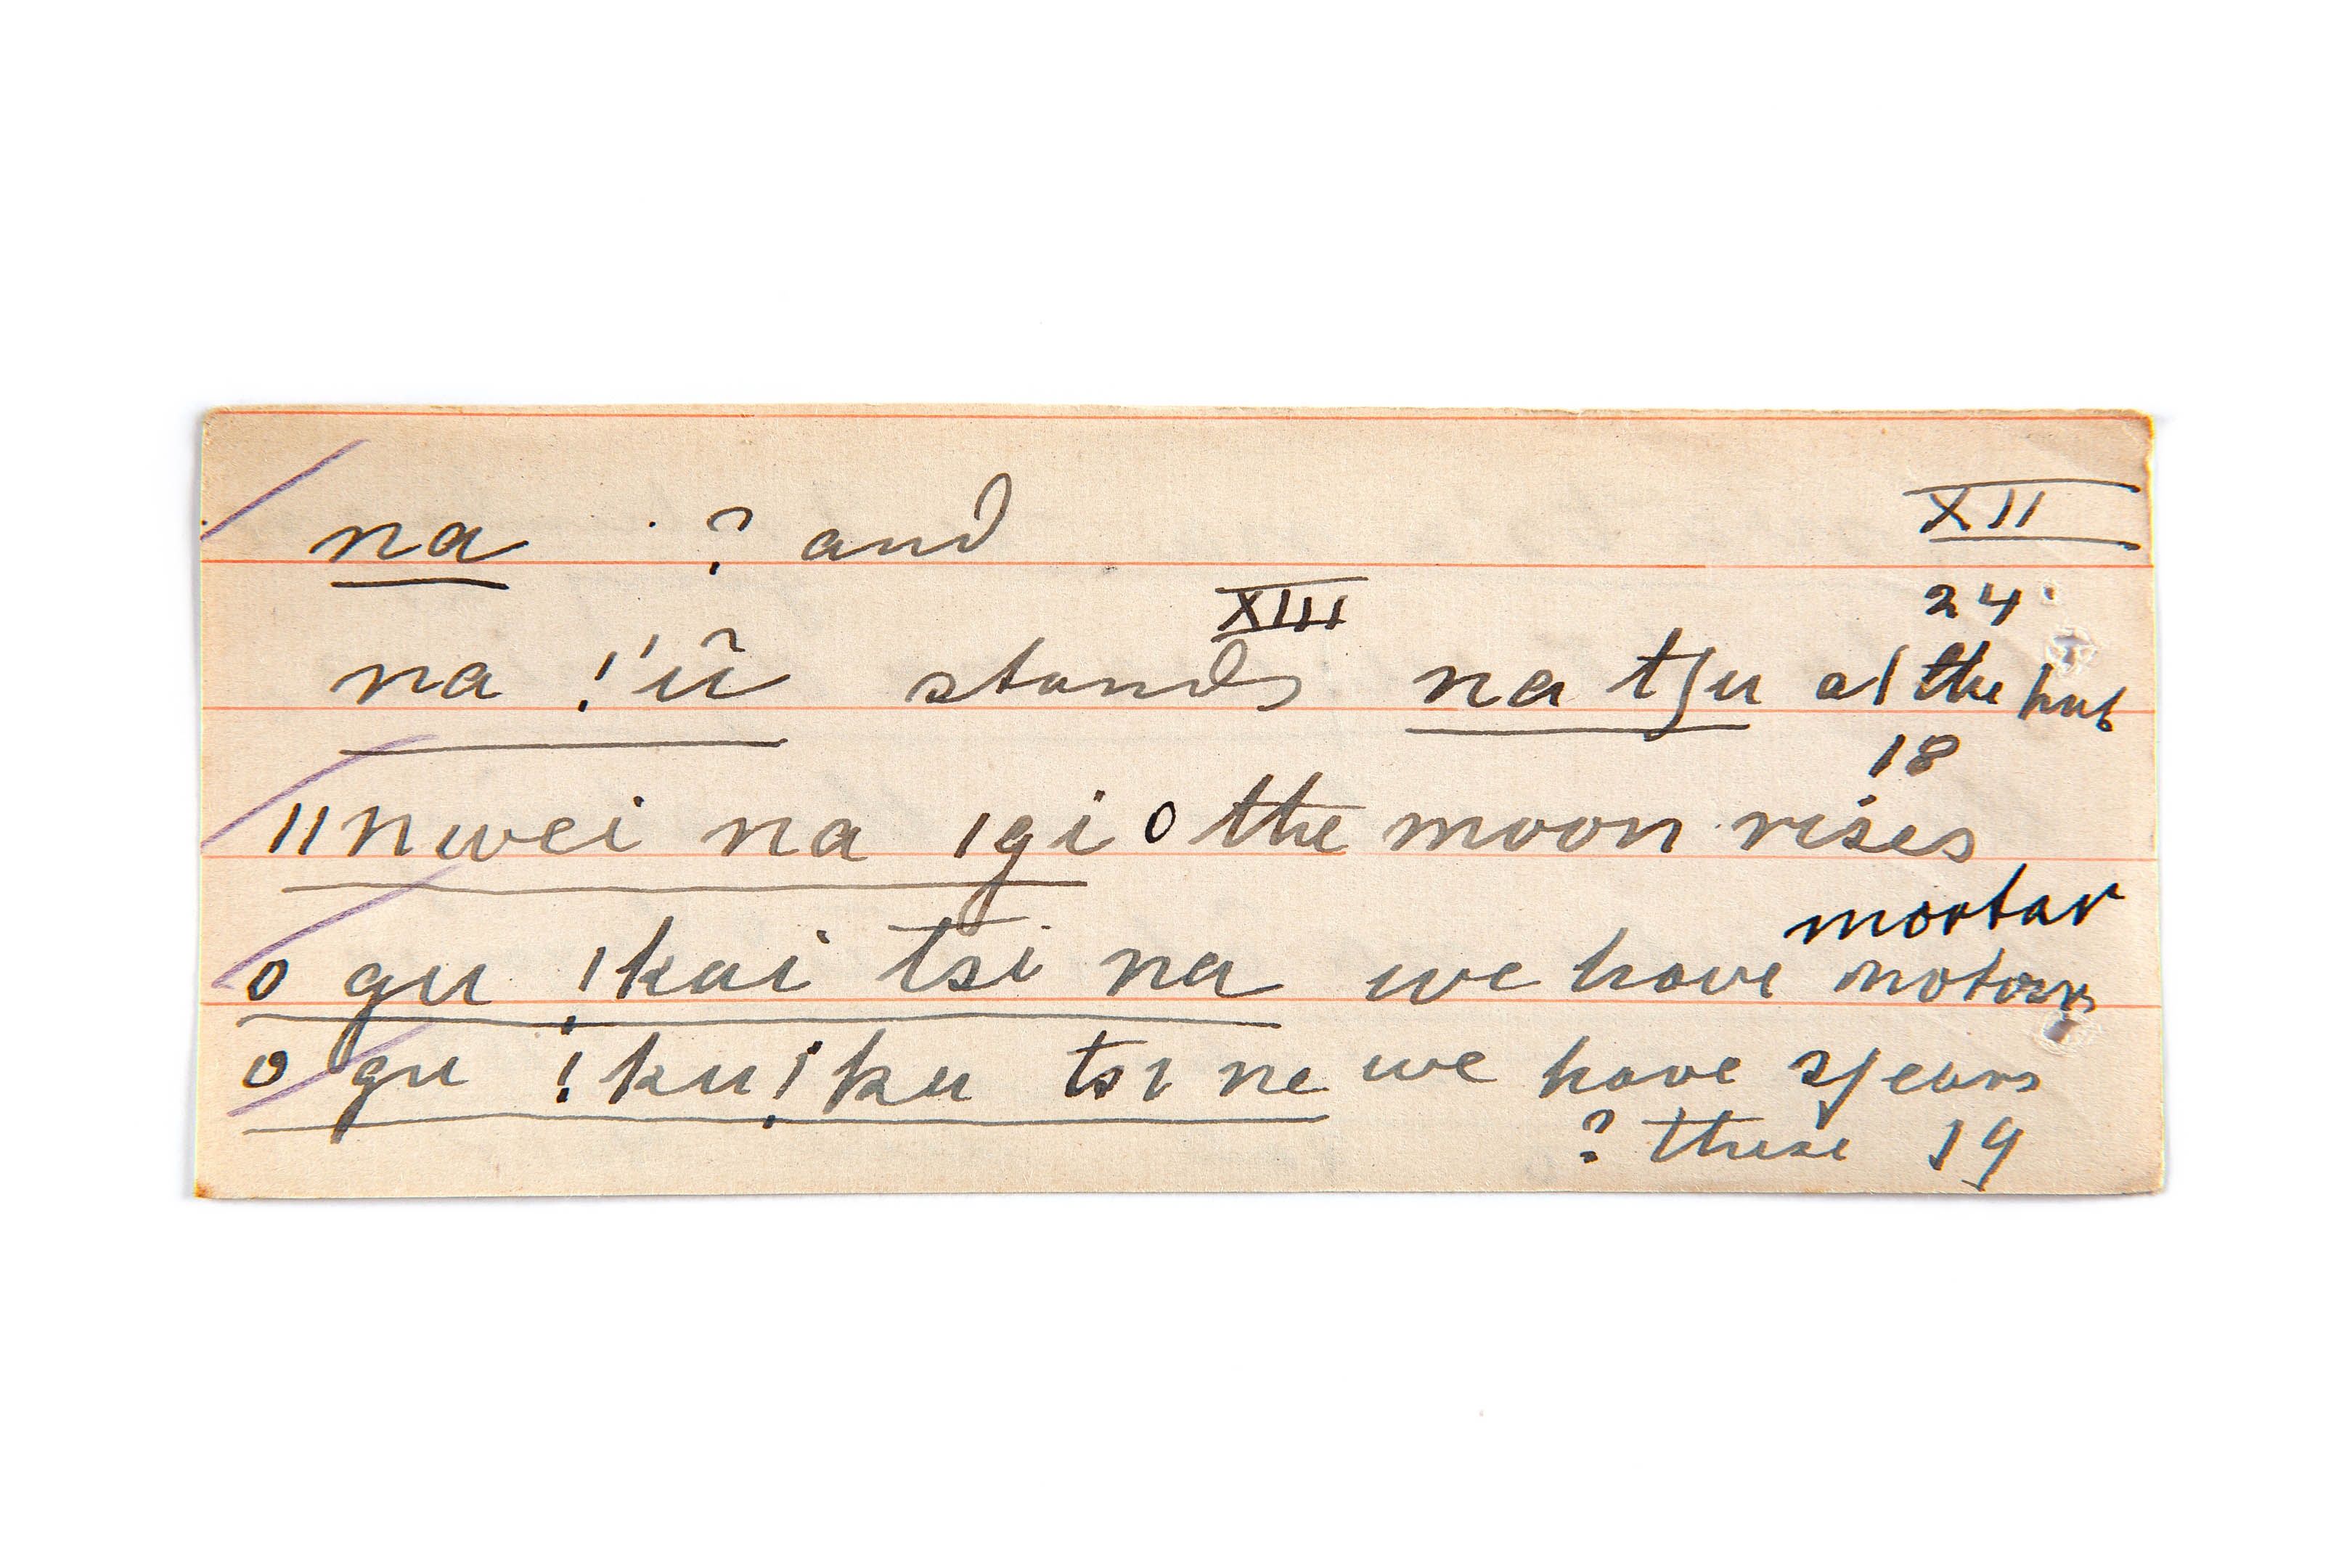 na ? and XII
XIII 24
na !'ũ stands na tʃu at the hut
18
ǁnwei na ǀgi o the moon rises
mortar
o gu !kai tsi na we have motars
o gu !ku!ku tsi ne we have spears
? these 19